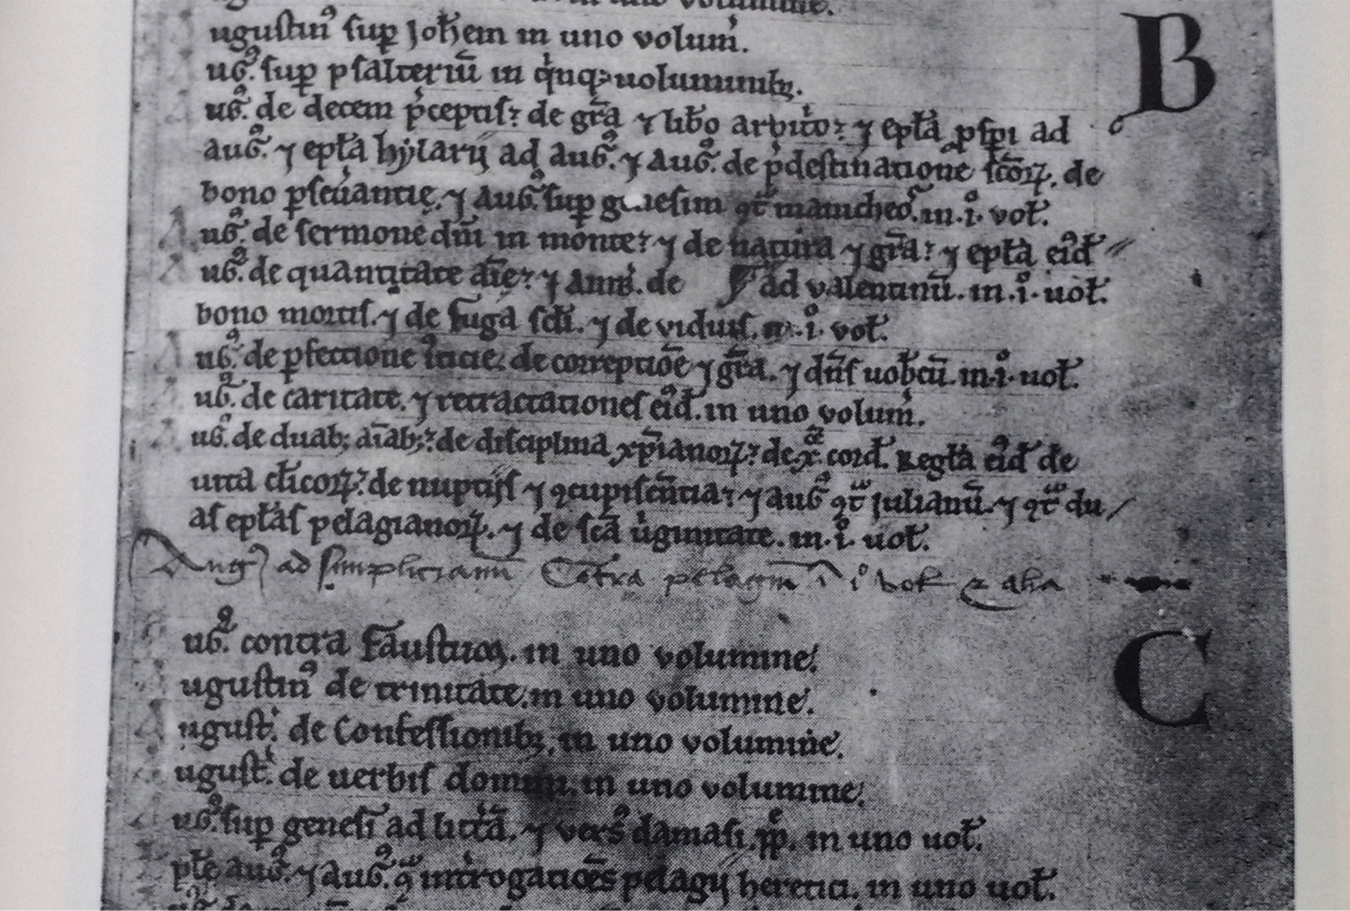 in uno volumine.
ugustin⁹ sup Joh̄em in uno volum̄.
B
ug⁹. sup psalteriū in q̇nq; uoluminib;.
ug⁹. de decem p̄ceptis? de gr̄a ⁊ lib̄o arbit̓o? ⁊ epl̄a ꝓspi ad
aug⁹. ⁊ epl̄a hẏlarij ad aug⁹. ⁊ aug⁹. de p̄destinatione sc̄oꝝ. de
bono pseuantię. ⁊ aug⁹. sup genesim ꝯt̄ manicheo⁹. in .i.º vol̄.
ug⁹. de sermone dn̄i in monte? ⁊ de natura ⁊ gr̄a? ⁊ epl̄a eid̄ //
ug⁹. de quantitate aīę? ⁊ Amb̓. de ad valentinū. in .i.º uol̄.
bono mortis. ⁊ de fuga sc̄li. ⁊ de viduis. in .i.º vol̄.
ug⁹. de ꝑfectione iusticie. de correptiōe ⁊ gr̄a. ⁊ dn̄s uobcū. in .i.º uol̄.
ug⁹. de caritate. ⁊ retractationes eid̄. in uno volum̄.
ug⁹. de duab; aīab;? de disciplina xp̄ianoꝝ? de .x. cord̄. Regl̄a eid̄ de
uita cl̄icoꝝ? de nuptijs ⁊ ꝯcupiscēntia? ⁊ aug⁹ ꝯt̄ Julianū. ⁊ ꝯt̄ du /
as epl̄as pelagianoꝝ. ⁊ de sc̄a uiginitate. in .i.º uol̄.
Aug⁹ ad simplicianū Cōtra pelagiū ī iº vol̄ & alia
ug⁹. contra Faustum. in uno volumine.
C
ugustin⁹ de trinitate. in uno volumine.
ugust̓. de Confessionib;. in uno volumine.
ugust̓. de uerbis domini in uno volumine.
ug⁹. sup genesī ad litt̄ā. ⁊ vers⁹ damasi. pp̄. in uno uol̄.
pl̄e aug⁹. ⁊ aug⁹. ꝯ int̓rogatiōes pelagij heretici. in uno uol̄.